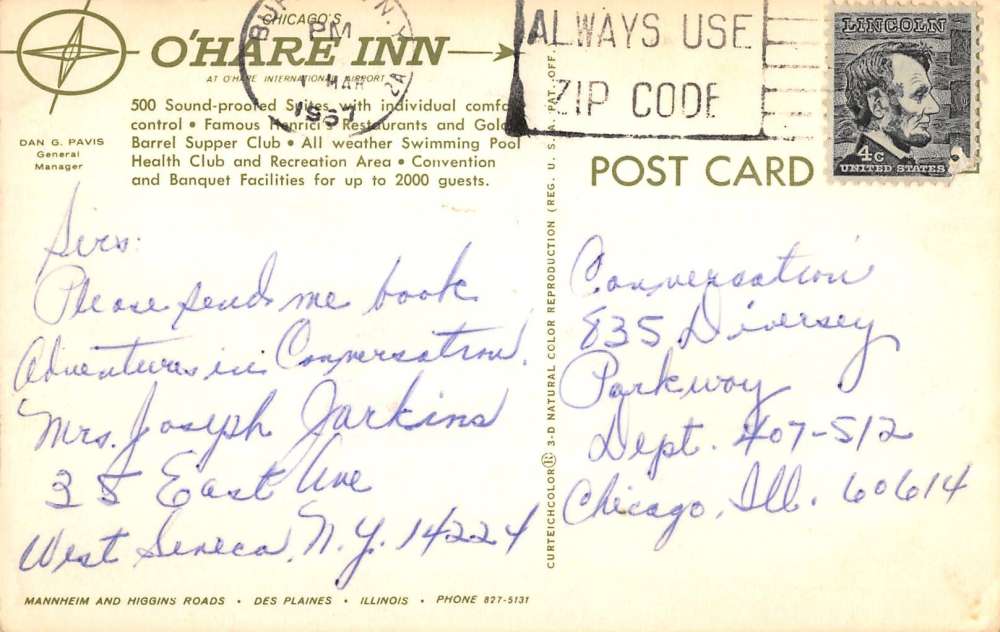 CHICAGO'S
O'HARE INN
AT O'HARE INTERNATIONAL AIRPORT
500 Sound-proofed Suites with individual comfort
control • Famous Henrici's Restaurants and Gold
Barrel Supper Club • All weather Swimming Pool
Health Club and Recreation Area • Convention
and Banquet Facilities for up to 2000 guests.
DAN G. PAVIS
General
Manager
N.Y.
PM
1 MAR
1967
ALWAYS USE
ZIP CODE
LINCOLN
4c
UNITED STATES
POST CARD
Sirs:
Please send me book
Adventures in Conversation.
Mrs. Joseph Jarkins
38 East Ave
West Seneca, N.Y. 14224
Conversation
835 Diversey
Parkway
Dept. 407-512
Chicago, Ill. 60614
CURTEICHCOLOR® 3-D NATURAL COLOR REPRODUCTION (REG. U. S. A. PAT. OFF.
MANNHEIM AND HIGGINS ROADS • DES PLAINES • ILLINOIS • PHONE 827-5131